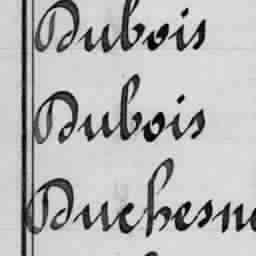 Dubois
Dubois
Duchesne